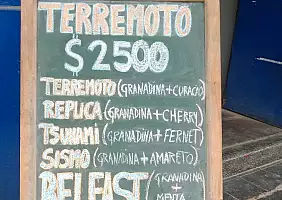 TERREMOTO
$2500
TERREMOTO (GRANADINA+CURACIO)
REPLICA (GRANADINA+CHERRY)
TSUNAMI (GRANADINA+FERNET)
SISMO (GRANADINA+AMARETO)
BELFAST (GRANADINA
+
MENTA